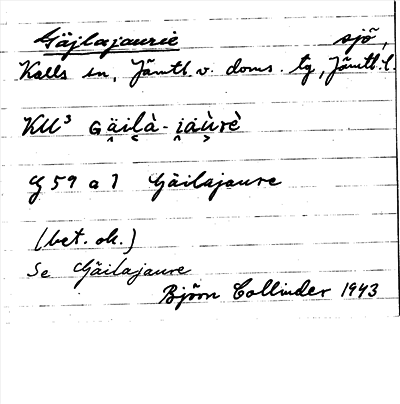 Gäjlajaurie sjö,
Kalls sn, Jämtl. v. doms. tg, Jämtl. l.
KU³ Gäilà-iäùrè
G 59 a 7 Gäilajaure
(bet. ok.)
Se Gäilajaure
Björn Collinder 1943